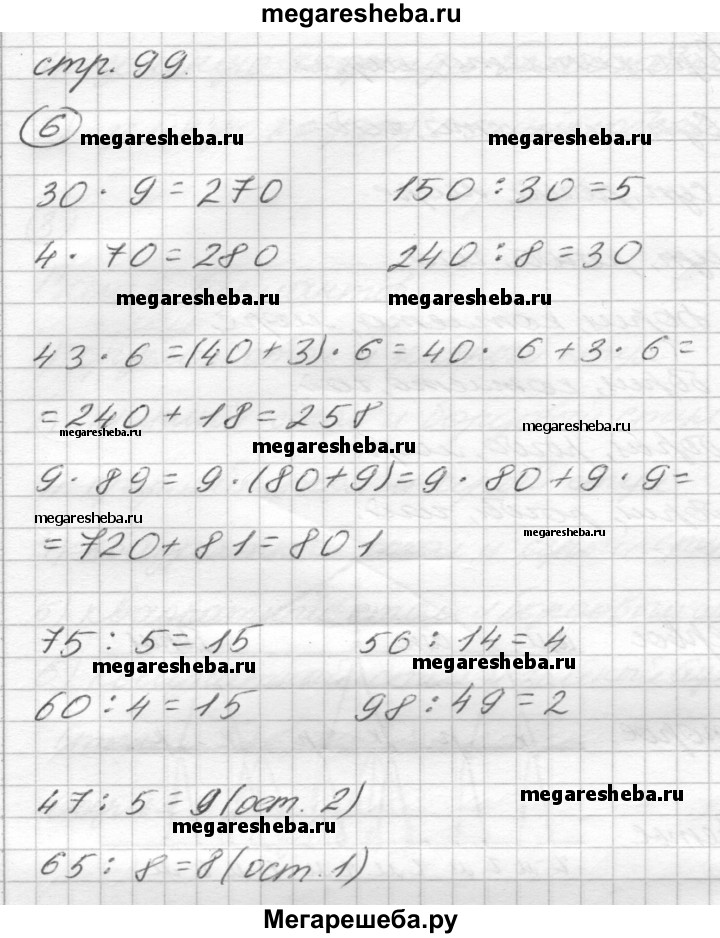 megaresheba.ru
стр. 99.
6
megaresheba.ru megaresheba.ru
30 · 9 = 270 150 : 30 = 5
4 · 70 = 280 240 : 8 = 30
megaresheba.ru megaresheba.ru
43 · 6 = (40 + 3) · 6 = 40 · 6 + 3 · 6 =
= 240 + 18 = 258
megaresheba.ru megaresheba.ru megaresheba.ru
9 · 89 = 9 · (80 + 9) = 9 · 80 + 9 · 9 =
megaresheba.ru megaresheba.ru
= 720 + 81 = 801
75 : 5 = 15 56 : 14 = 4
megaresheba.ru megaresheba.ru
60 : 4 = 15 98 : 49 = 2
47 : 5 = 9 (ост. 2) megaresheba.ru
megaresheba.ru
65 : 8 = 8 (ост. 1)
Мегарешеба.ру